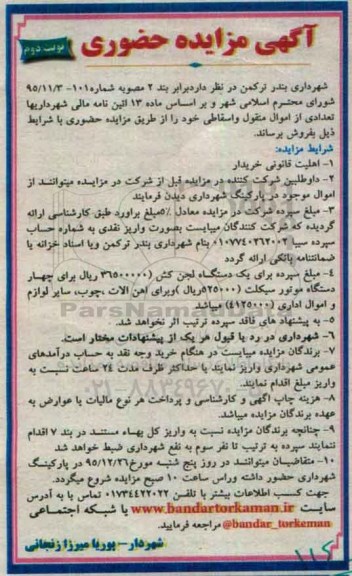 آگهی مزایده حضوری
نوبت دوم
شهرداری بندر ترکمن در نظر داردبرابر بند ۲ مصوبه شماره۱۰۱- ۹۵/۱۱/۳
شورای محترم اسلامی شهر و بر اساس ماده ۱۳ ائین نامه مالی شهرداریها
تعدادی از اموال منقول واسقاطی خود را از طریق مزایده حضوری با شرایط
ذیل بفروش برساند.
شرایط مزایده:
۱- اهلیت قانونی خریدار
۲- داوطلبین شرکت کننده در مزایده قبل از شرکت در مزایده میتوانند از
اموال موجود در پارکینگ شهرداری دیدن فرمایند
۳- مبلغ سپرده شرکت در مزایده معادل ۵٪مبلغ براورد طبق کارشناسی ارائه
گردیده که شرکت کنندگان میبایست بصورت واریز نقدی به شماره حساب
سپرده سیبا ۰۱۰۷۷۴۰۲۶۲۰۰۲ بنام شهرداری بندر ترکمن ویا اسناد خزانه یا
ضمانتنامه بانکی ارائه گردد
۴- مبلغ سپرده برای یک دستگاه لجن کش (۳۶۵۰۰۰۰۰) ریال برای چهار
دستگاه موتور سیکلت (۵۲۵۰۰۰ریال) وبرای اهن الات ،چوب، سایر لوازم
و اموال اداری (۴۱۲۵۰۰۰) میباشد
۵- به پیشنهاد های فاقد سپرده ترتیب اثر نخواهد شد.
۶- شهرداری در رد یا قبول هر یک از پیشنهادات مختار است.
۷- برندگان مزایده میبایست در هنگام خرید وجه نقد به حساب درآمدهای
عمومی شهرداری واریز نمایند یا حداکثر ظرف مدت ۲۴ ساعت نسبت به
واریز مبلغ اقدام نمایند.
۸- هزینه چاپ اگهی و کارشناسی و پرداخت هر نوع مالیات یا عوارض به
عهده برندگان مزایده میباشد.
۹- چنانچه برندگان مزایده نسبت به واریز کل بهاء مستند در بند ۷ اقدام
ننمایند سپرده به ترتیب تا نفر سوم به نفع شهرداری ضبط خواهد شد.
۱۰- متقاضیان میتوانند در روز پنج شنبه مورخ۹۵/۱۲/۲۶ در پارکینگ
شهرداری حضور داشته وراس ساعت ۱۰ صبح مزایده شروع میگردد.
جهت کسب اطلاعات بیشتر با تلفن ۰۱۷۳۴۴۲۲۰۲۲ تماس یا به آدرس
سایت www.bandartorkaman.ir یا شبکه اجتماعی
@bandar_torkeman مراجعه فرمایید.
شهردار- پوریا میرزا زنجانی
ParsNamadData